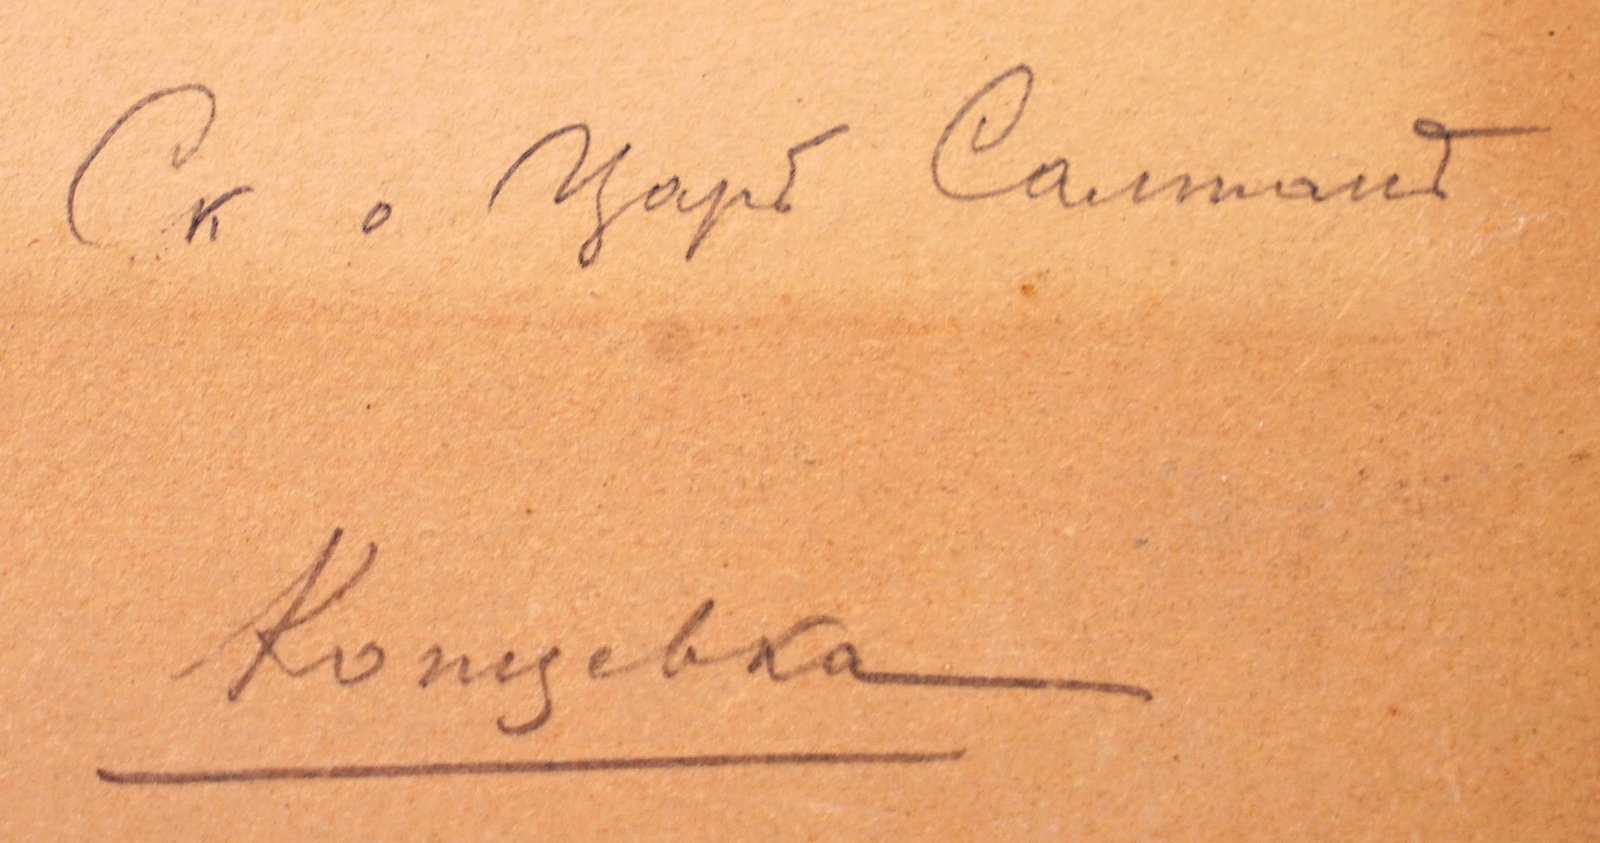 Ск о Царѣ Салтанѣ
Концевка